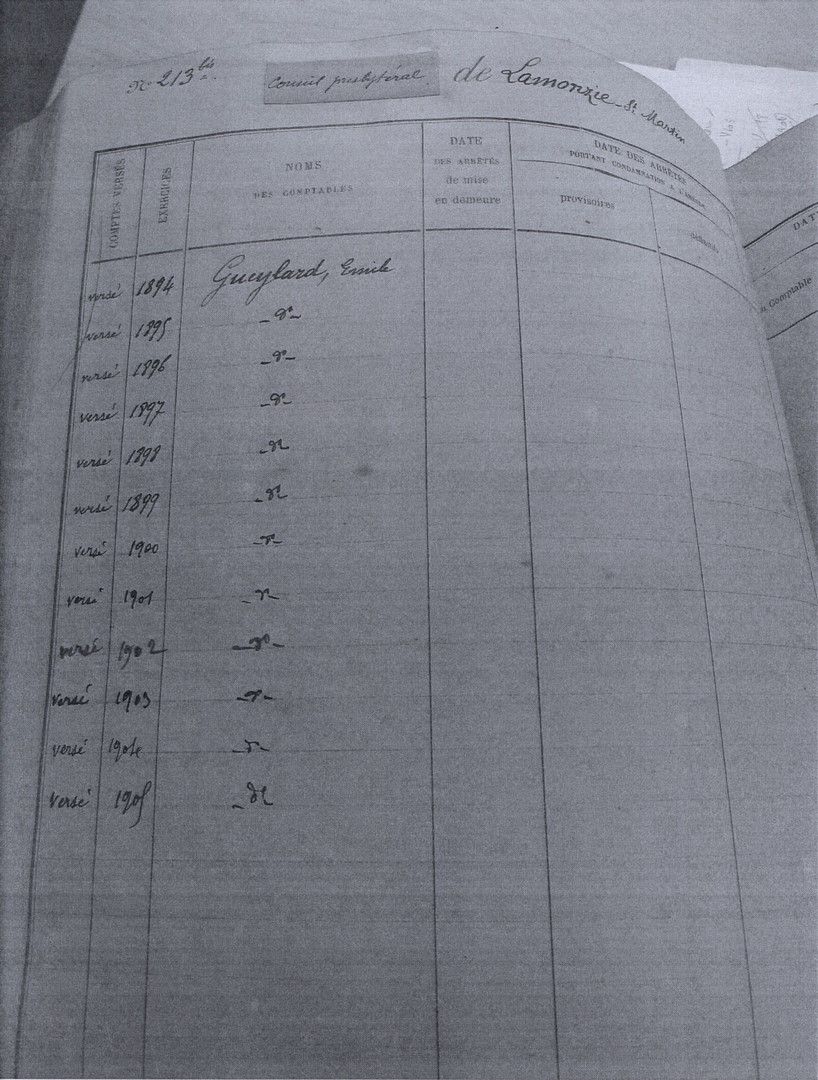 N° 213 bis. Conseil presbytéral de Lamonzie-St Martin
COMPTES VERSÉS
EXERCICES
NOMS
DES COMPTABLES
DATE
DES ARRÊTÉS
de mise
en demeure
DATE DES ARRÊTÉS
PORTANT CONDAMNATION A L'AMENDE
provisoires
définitifs
versé 1894 Gueylard, Emile
versé 1895 - d° -
versé 1896 - d° -
versé 1897 - d° -
versé 1898 - d° -
versé 1899 - d° -
versé 1900 - d° -
versé 1901 - d° -
versé 1902 - d° -
versé 1903 - d° -
versé 1904 - d° -
versé 1905 - d° -
DAT
Comptable